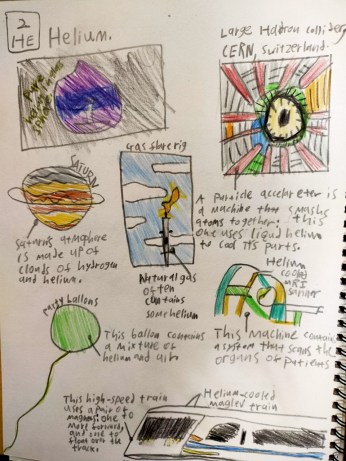 2
HE
Helium.
Large Hadron collider
CERN, Switzerland.
Gas flare rig
SATURN
Saturns atmosphere
is made up of
clouds of hydrogen
and helium.
A particle accelerater is
a machine that smashs
atoms together; this
one uses liquid helium
to cool its parts.
Natural gas
often
contains
some helium
Helium
cooled
MRI
scanner
Party ballons
This ballon contains
a mixture of
helium and air.
This machine contains
a system that scans the
organs of patients
This high-speed train
uses a pair of
magnets; one to
move forward,
and one to
float over the
track.
Helium-cooled
maglev train